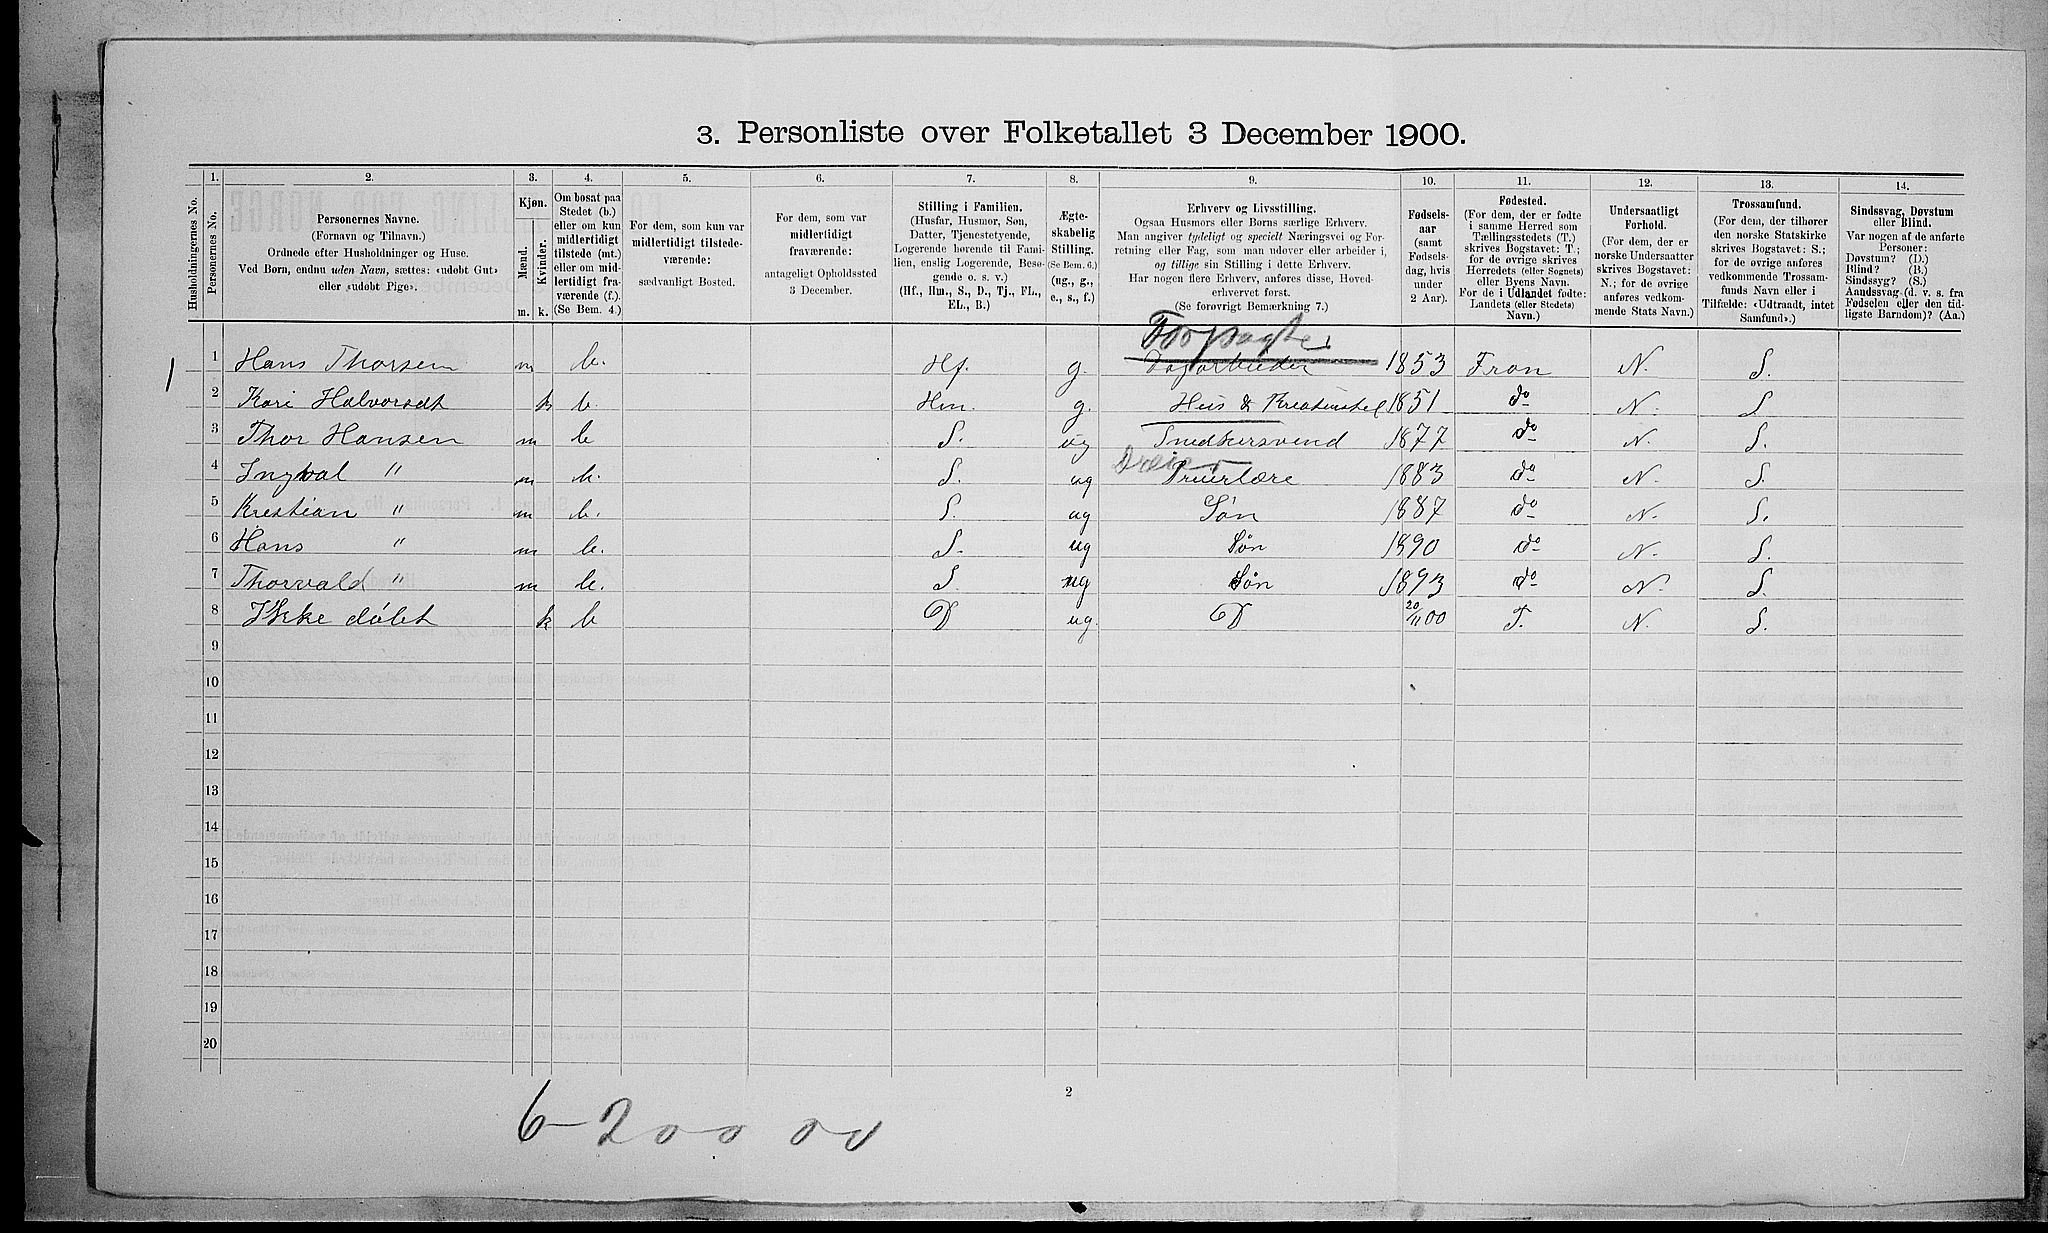 3. Personliste over Folketallet 3 December 1900.
1. 2. 3. 4. 5. 6. 7. 8. 9. 10. 11. 12. 13. 14.
Husholdningernes No.
Personernes No.
Personernes Navne.
(Fornavn og Tilnavn.)
Ordnede efter Husholdninger og Huse.
Ved Børn, endnu uden Navn, sættes: «udøbt Gut»
eller «udøbt Pige».
Kjøn.
Mænd.
Kvinder.
m. k.
Om bosat paa
Stedet (b.)
eller om kun
midlertidigt
tilstede (mt.)
eller om mid-
lertidigt fra-
værende (f.).
(Se Bem. 4.)
For dem, som kun var
midlertidigt tilstede-
værende:
sædvanligt Bosted.
For dem, som var
midlertidigt
fraværende:
antageligt Opholdssted
3 December.
Stilling i Familien.
(Husfar, Husmor, Søn,
Datter, Tjenestetyende,
Logerende hørende til Fami-
lien, enslig Logerende, Besø-
gende o. s. v.)
(Hf., Hm., S., D., Tj., FL.,
EL., B.)
Ægte-
skabelig
Stilling.
(Se Bem. 6.)
(ug., g.,
e., s., f.)
Erhverv og Livsstilling.
Ogsaa Husmors eller Børns særlige Erhverv.
Man angiver tydeligt og specielt Næringsvei og For-
retning eller Fag, som man udøver eller arbeider i,
og tillige sin Stilling i dette Erhverv.
Har nogen flere Erhverv, anføres disse, Hoved-
erhvervet først.
(Se forøvrigt Bemærkning 7.)
Fødsels-
aar
(samt
Fødsels-
dag, hvis
under
2 Aar).
Fødested.
(For dem, der er fødte
i samme Herred som
Tællingsstedets (T.)
skrives Bogstavet: T.;
for de øvrige skrives
Herredets (eller Sognets)
eller Byens Navn.
For de i Udlandet fødte:
Landets (eller Stedets)
Navn.)
Undersaatligt
Forhold.
(For dem, der er
norske Undersaatter
skrives Bogstavet:
N.; for de øvrige
anføres vedkom-
mende Stats Navn.)
Trossamfund.
(For dem, der tilhører
den norske Statskirke
skrives Bogstavet: S.;
for de øvrige anføres
vedkommende Trossam-
funds Navn eller i
Tilfælde: «Udtraadt, intet
Samfund».)
Sindssvag, Døvstum
eller Blind.
Var nogen af de anførte
Personer:
Døvstum? (D.)
Blind? (B.)
Sindssyg? (S.)
Aandssvag (d. v. s. fra
Fødselen eller den tid-
ligste Barndom)? (Aa.)
Forpagter
1 1 Hans Thorsen m b. Hf. g. Dagarbeider 1853 Fron N. S.
2 Kari Halvorsdt k b. Hm. g. Hus & Kreaturstel 1851 do N. S
3 Thor Hansen m b S. ug Snedkersvend 1877 do N. S.
Dreie
4 Ingval " m b. S. ug 1883 do N. S.
5 Krestian " m b. S. ug Søn 1887 do N. S.
6 Hans " m b. S. ug Søn 1890 do N. S.
7 Thorvald " m b. S. ug Søn 1893 do N. S.
8 Ikke døbt k b D ug. D 20/11 00 T. N. S.
9
10
11
12
13
14
15
16
17
18
19
20
2
6-200 00